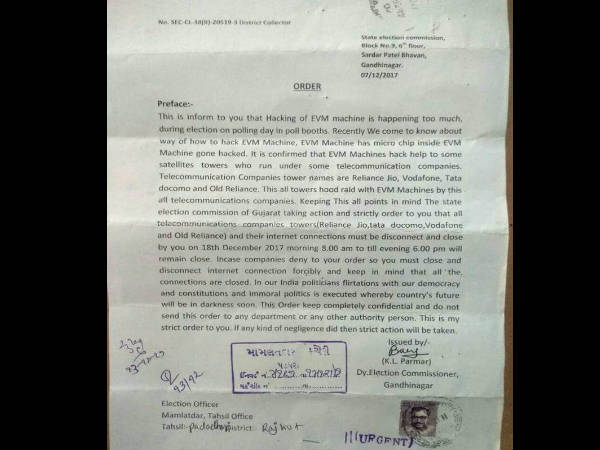 No. SEC-CL-38(II)-20519-3 District Collector
State election commission,
Block No.9, 6th floor,
Sardar Patel Bhavan,
Gandhinagar.
07/12/2017
ORDER
Preface:-
This is inform to you that Hacking of EVM machine is happening too much,
during election on polling day in poll booths. Recently We come to know about
way of how to hack EVM Machine, EVM Machine has micro chip inside EVM
Machine gone hacked. It is confirmed that EVM Machines hack help to some
satellites towers who run under some telecommunication companies.
Telecommunication Companies tower names are Reliance Jio, Vodafone, Tata
docomo and Old Reliance. This all towers hood raid with EVM Machines by this
all telecommunications companies. Keeping This all points in mind The state
election commission of Gujarat taking action and strictly order to you that all
telecommunications companies towers(Reliance Jio,tata docomo,Vodafone
and Old Reliance) and their internet connections must be disconnect and close
by you on 18th December 2017 morning 8.00 am to till evening 6.00 pm will
remain close. Incase companies deny to your order so you must close and
disconnect internet connection forcibly and keep in mind that all the
connections are closed. In our India politicians flirtations with our democracy
and constitutions and immoral politics is executed whereby country's future
will be in darkness soon. This Order keep completely confidential and do not
send this order to any department or any other authority person. This is my
strict order to you. If any kind of negligence did then strict action will be taken.
Issued by/-
(K.L. Parmar)
Dy.Election Commissioner,
Gandhinagar
મામલતદાર કચેરી
Election Officer
Mamlatdar, Tahsil Office
Tahsil:- District:- Rajkot
(URGENT)